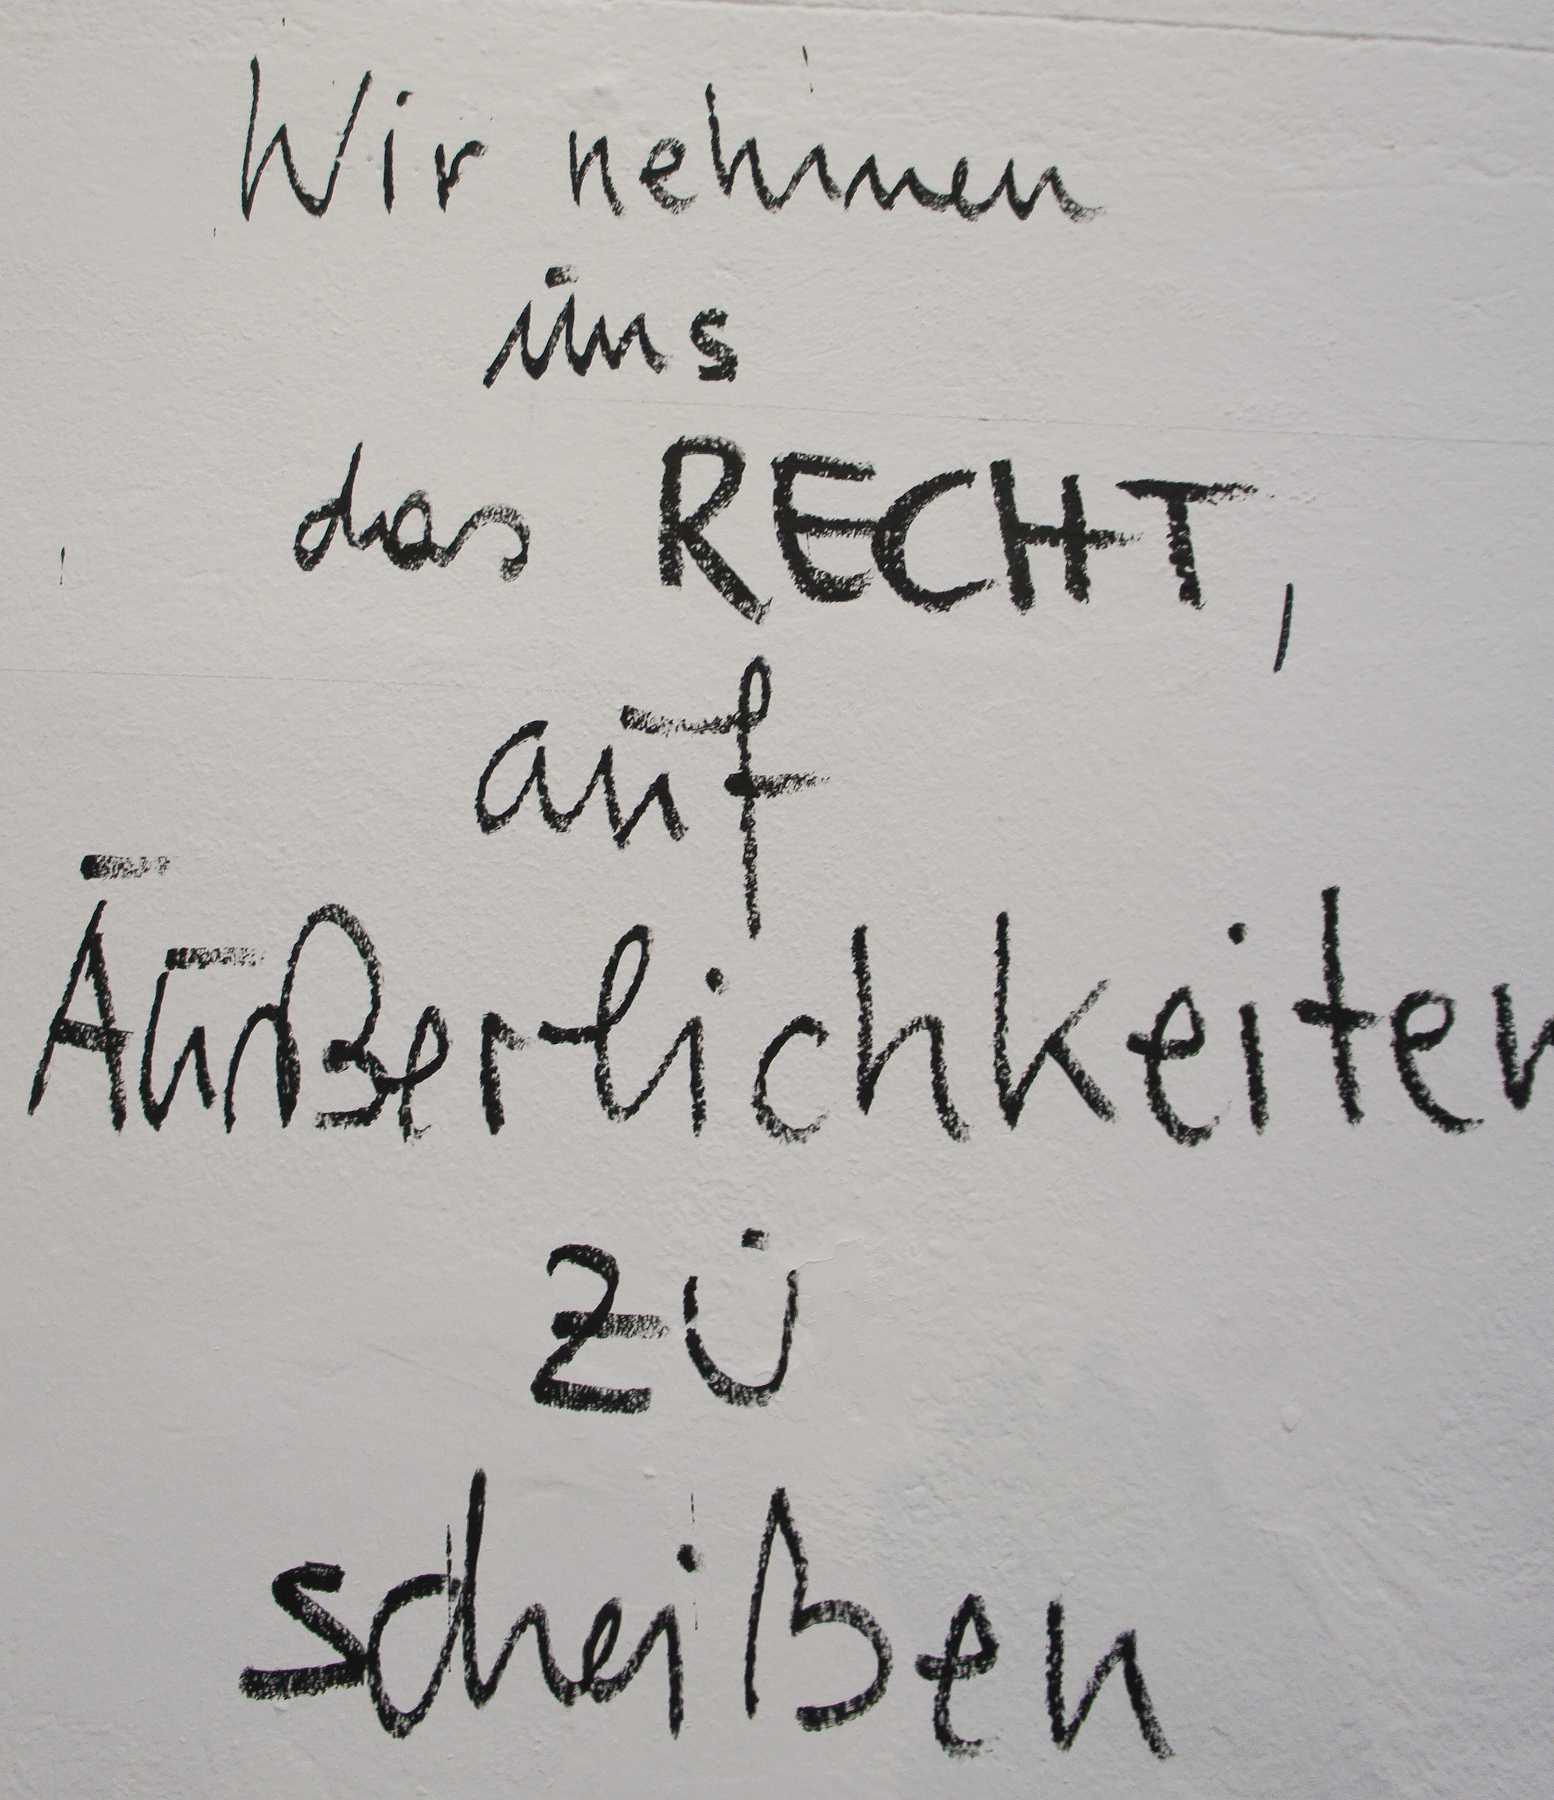 Wir nehmen
uns
das RECHT,
auf
Äußerlichkeiten
zu
scheißen